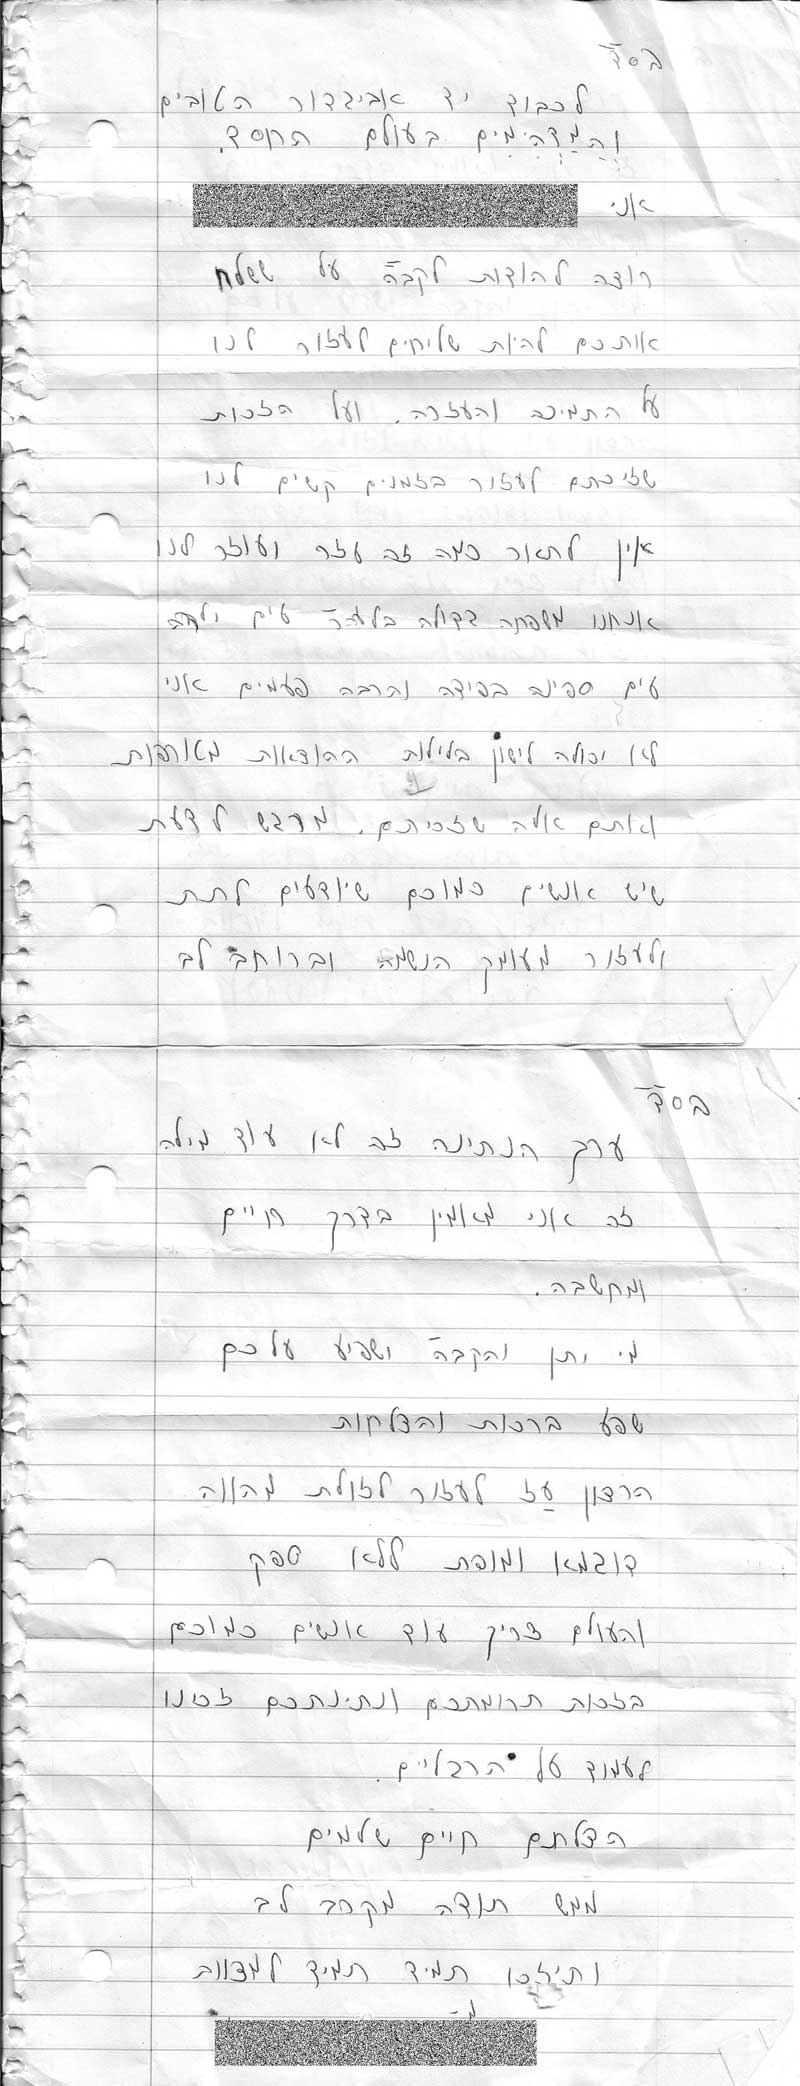 בס"ד
לכבוד יד אביגדור הטובים
וְהַמַדְהִימִים בעולם החסד.
אני
רוצה להודות לקבה על ששלח
אותכם להיות שליחים לעזור לנו
על התמיכה והעזרה. ועל הזכות
שזיכתם לעזור בזמנים קשים לנו
אין לתאור כמה זה עזר ועוזר לנו
אנחנו משפחה גדולה בלעהר עים ילדה
עים ספינה בפידה והרבה פעמים אני
לא יכולה לישון בלילות ההוצאות מטורפות
ואתם אלה שזכיתם. מרגש לדעת
שיש אנשים כמוכם שיודעים לתת
ולעזור מעומק הנשמה וברוחב לב
בס"ד
ערך הנתינה זה לא עוד מילה
זה אני מאמין בדרך חיים
ומחשבה.
מי יתן והקבה ישפיע עלכם
שפע ברכות והצלחות
הרצון עַז לעזור לזולת מהווה
דוגמא ומופת ללא ספק
והעולם צריך עוד אנשים כמוכם
בזכות תרומתכם ונתינתכם זכינו
לעמוד על הרגליים.
הצלתם חיים שלמים
ממש תודה מקרב לב
ותיזכו תמיד תמיד למצוות
מ-